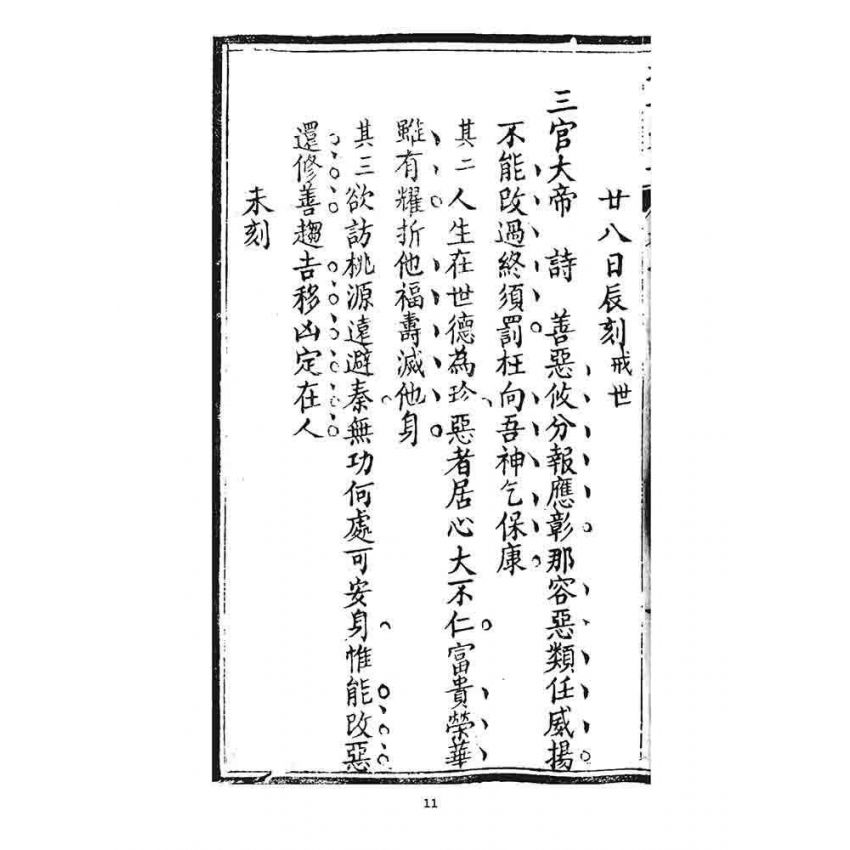 廿八日辰刻戒世
三官大帝　詩　善惡攸分報應彰那容惡類任威揚
不能改過終須罰枉向吾神乞保康
其二人生在世德為珍惡者居心大不仁富貴榮華
雖有耀折他福壽滅他身
其三欲訪桃源遠避秦無功何處可安身惟能改惡
還修善趨吉移凶定在人
未刻
11